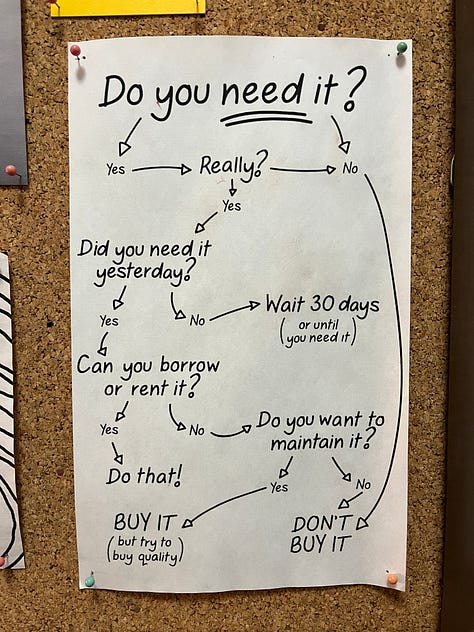 Do you need it?
Yes
Really?
No
Yes
Did you need it
yesterday?
Yes
No
Wait 30 days
(or until
you need it)
Can you borrow
or rent it?
Yes
No
Do you want to
maintain it?
Do that!
Yes
No
BUY IT
(but try to
buy quality)
DON'T
BUY IT